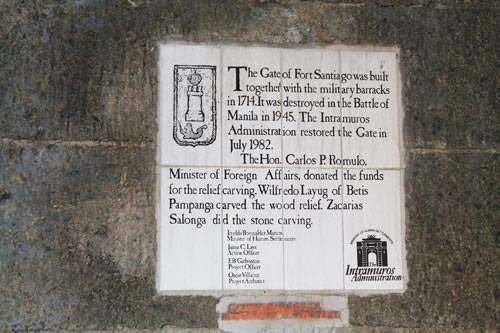 The Gate of Fort Santiago was built
together with the military barracks
in 1714. It was destroyed in the Battle of
Manila in 1945. The Intramuros
Administration restored the Gate in
July 1982.
The Hon. Carlos P. Romulo,
Minister of Foreign Affairs, donated the funds
for the relief carving. Wilfredo Layug of Betis
Pampanga carved the wood relief. Zacarias
Salonga did the stone carving.
Imelda Romualdez Marcos
Minister of Human Settlements
Jaime C. Laya
Action Officer
Project Officer
Project Architect
MINISTRY OF HUMAN SETTLEMENTS
The
Intramuros
Administration